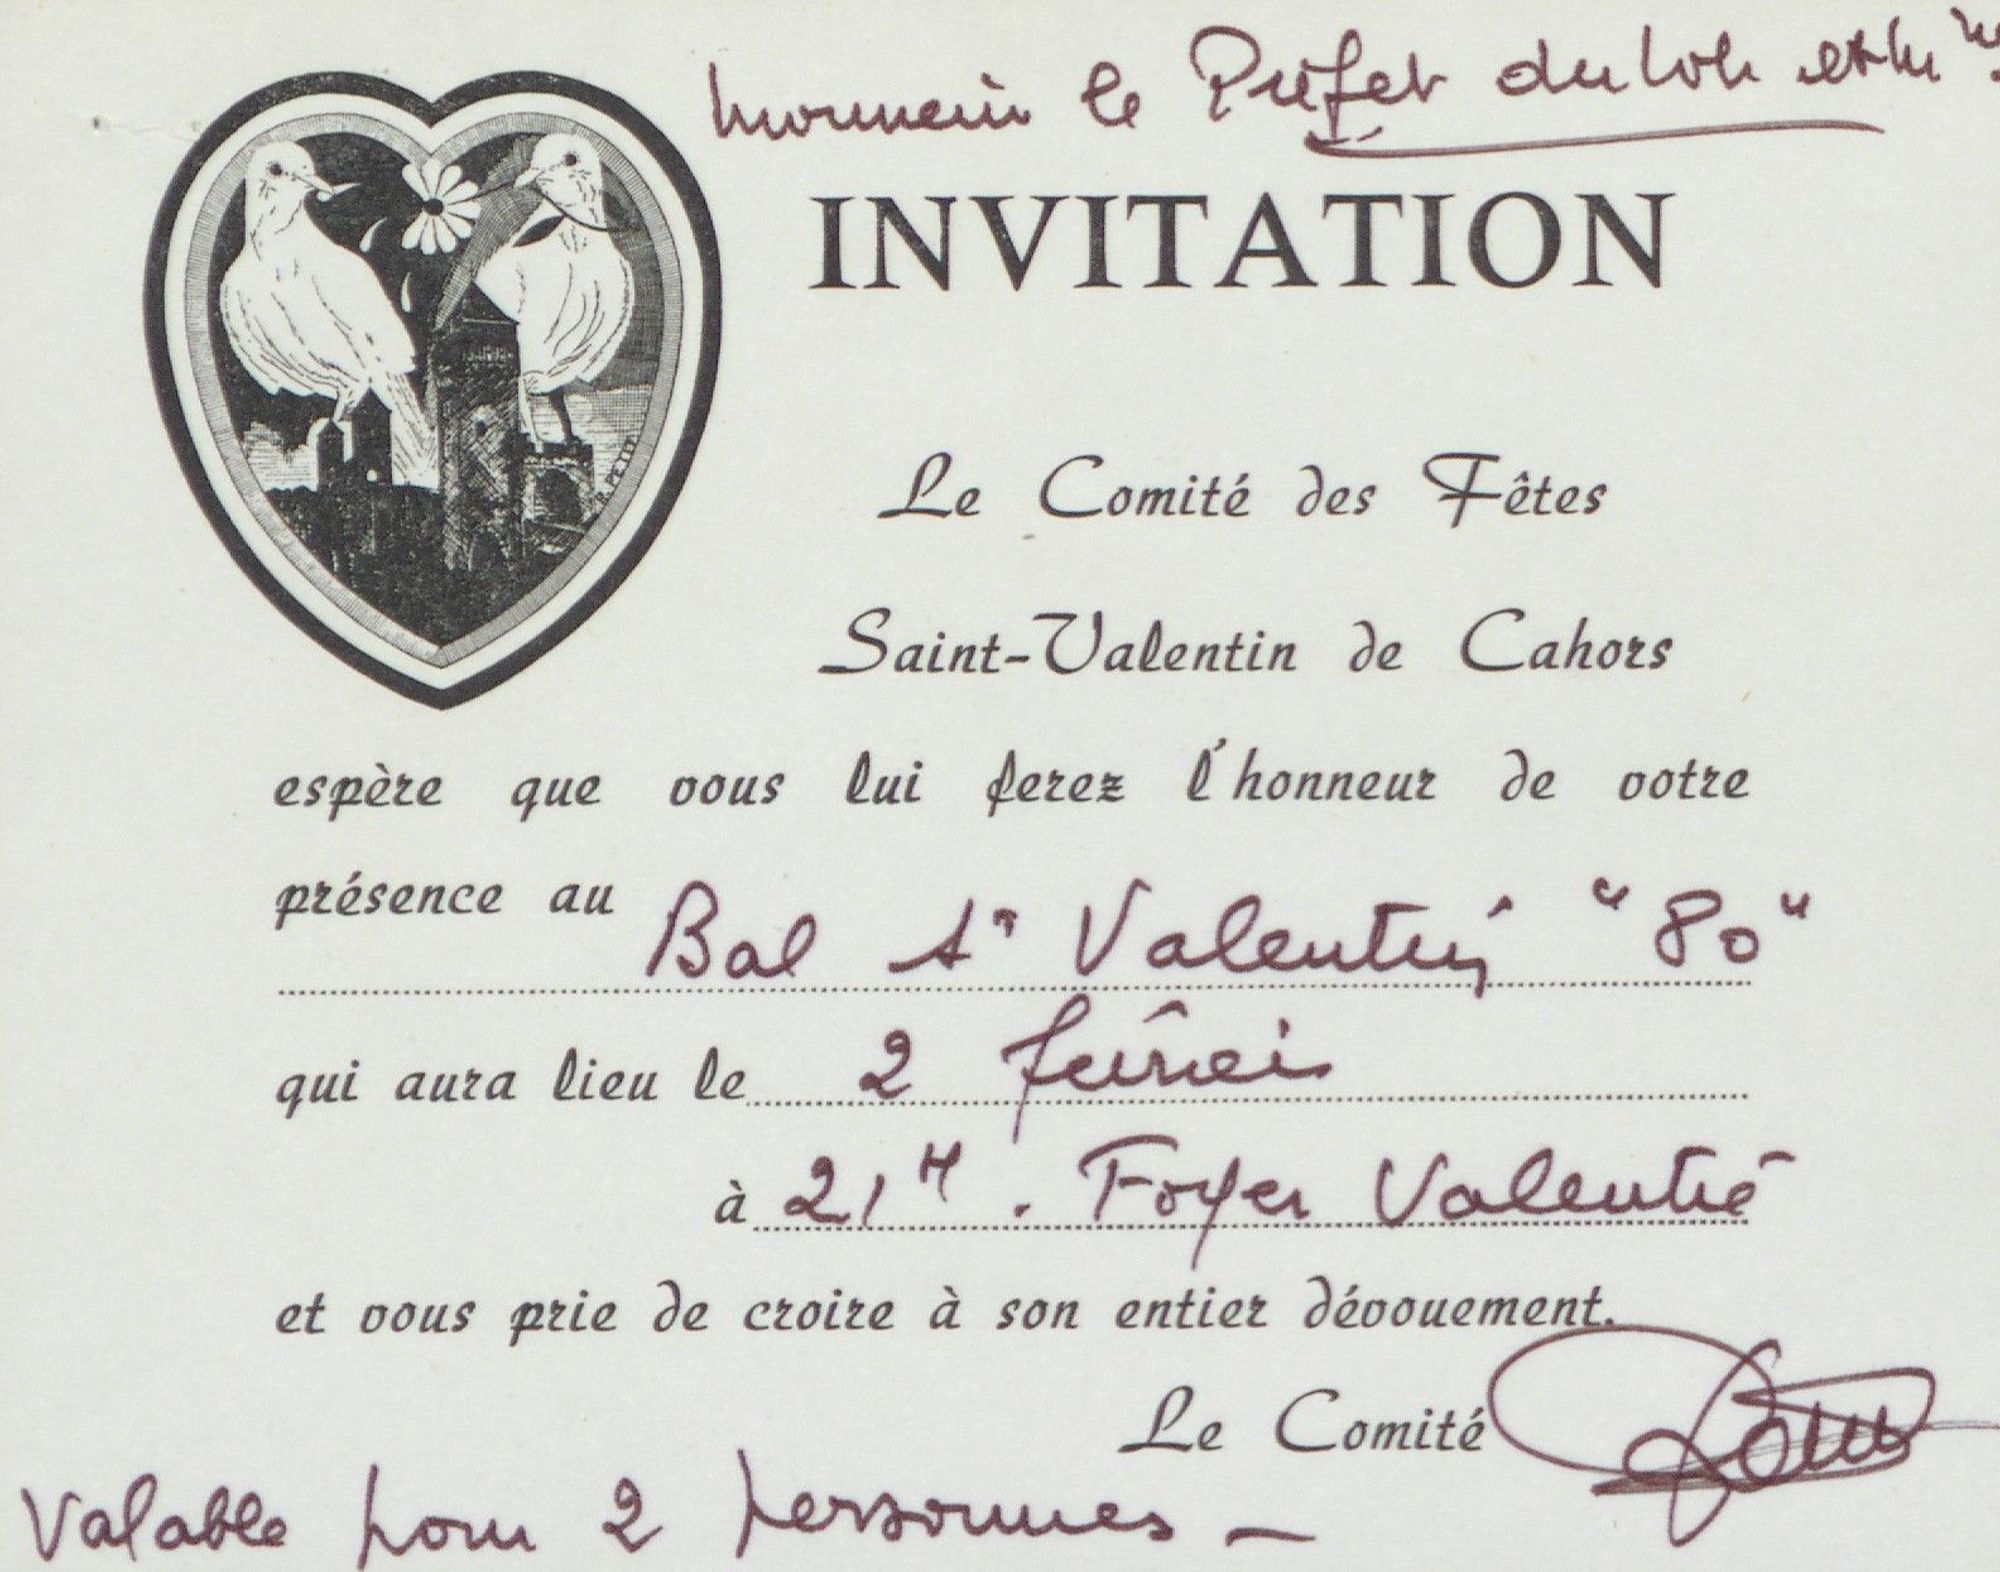 Monsieur le Préfet du Lot et Mme
INVITATION
Le Comité des Fêtes
Saint-Valentin de Cahors
espère que vous lui ferez l'honneur de votre
présence au Bal St Valentin "80"
qui aura lieu le 2 février
à 21H. Foyer Valentré
et vous prie de croire à son entier dévouement.
Le Comité
Valable pour 2 personnes —